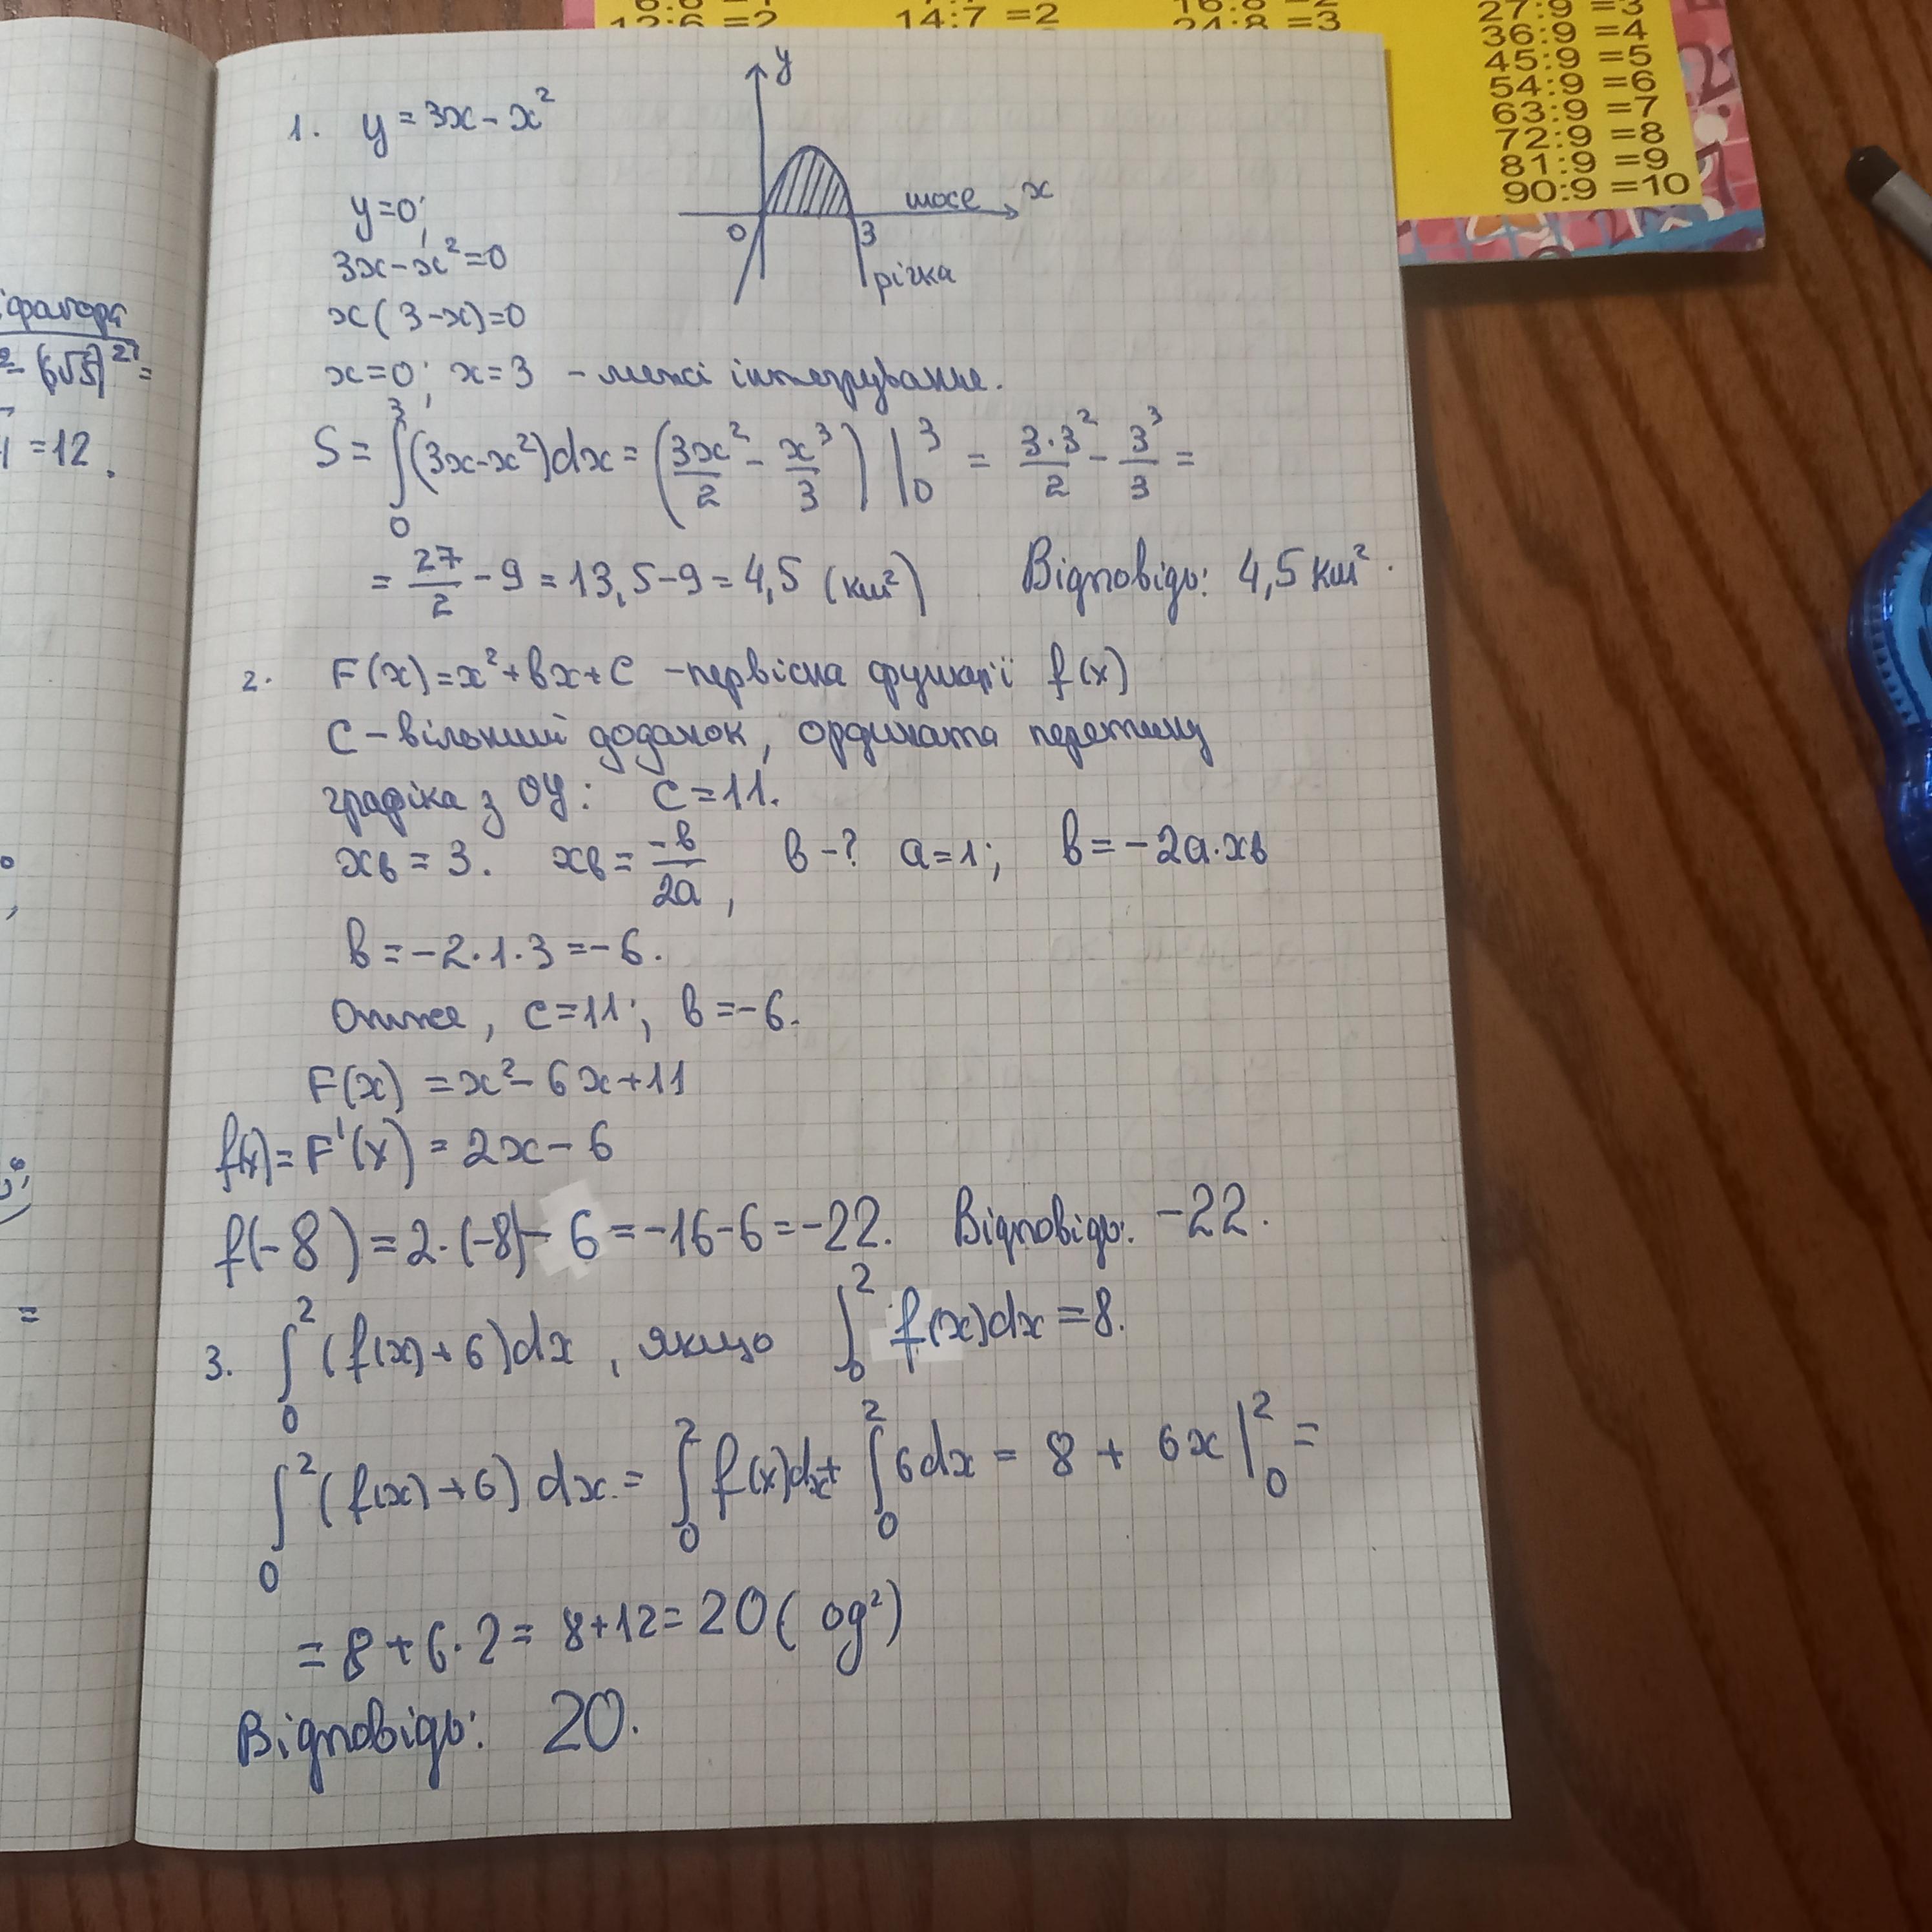 12:6 =2
14:7 =2
24:8 =3
27:9 =3
36:9 =4
45:9 =5
54:9 =6
63:9 =7
72:9 =8
81:9 =9
90:9 =10
1. y = 3x - x²
y
x
0
3
шосе
річка
y=0;
3x-x²=0
x(3-x)=0
x=0; x=3 - межі інтегрування.
S = ∫₀³(3x-x²)dx = (3x²/2 - x³/3) |₀³ = 3·3²/2 - 3³/3 =
= 27/2 - 9 = 13,5-9 = 4,5 (км²) Відповідь: 4,5 км².
2. F(x)=x²+bx+c - первісна функції f(x)
C - вільний доданок, ордината перетину
графіка з OY: C=11.
xв = 3. xв = -b/2a, b-? a=1; b=-2a·xв
b=-2·1·3=-6.
Отже, c=11; b=-6.
F(x) = x²-6x+11
f(x)= F'(x) = 2x-6
f(-8) = 2·(-8)-6 = -16-6 = -22. Відповідь: -22.
3. ∫₀²(f(x)+6)dx, якщо ∫₀² f(x)dx = 8.
∫₀²(f(x)+6)dx = ∫₀² f(x)dx + ∫₀² 6dx = 8 + 6x|₀² =
= 8+6·2 = 8+12 = 20 (од²)
Відповідь: 20.
=12.
=